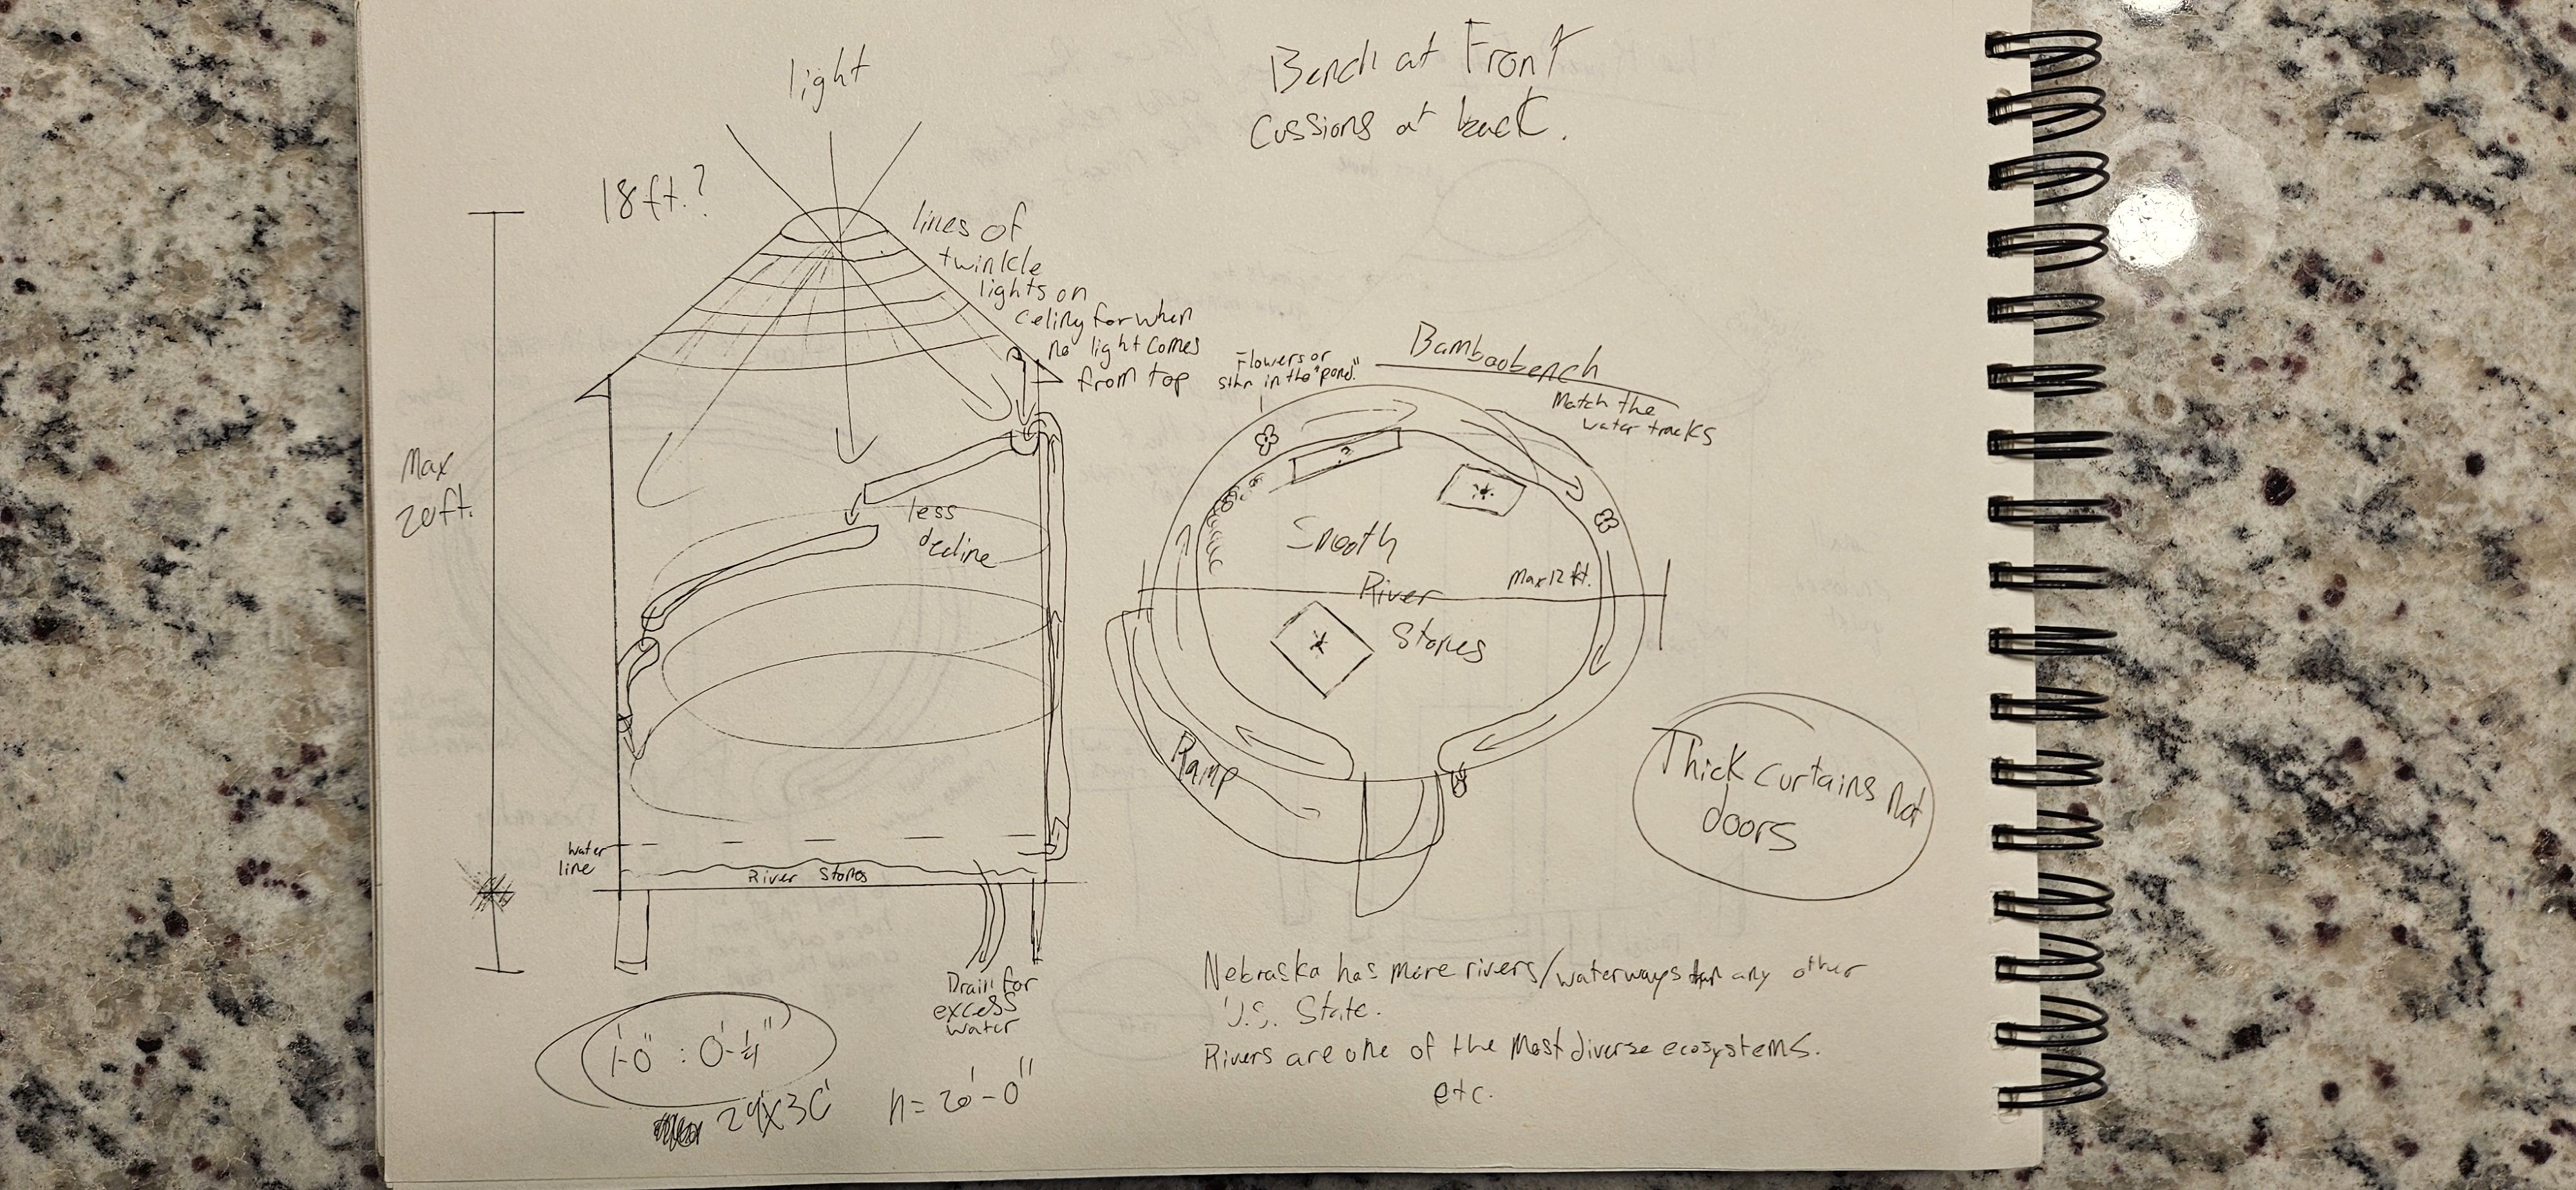 light
Bench at Front
Cussions at back.
18ft.?
lines of
twinkle
lights on
celing for when
no light comes
from top
Max
20ft.
less
decline
water
line
River Stones
Drain for
excess
water
1'-0" : 0'-¼"
h= 20'-0"
Flowers or
in the "pond"
Bamboobench
Match the
water tracks
?
Smooth
River
Stones
Max 12 ft.
Ramp
Thick curtains not
doors
Nebraska has more rivers/waterways than any other
U.S. State.
Rivers are one of the most diverse ecosystems.
etc.